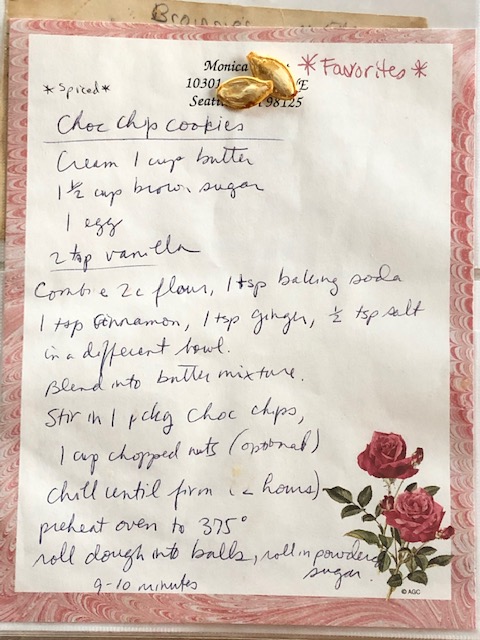 Brownie's
Monica
10301 E
Seattle 98125
*Favorites*
*Spiced*
Choc Chip Cookies
Cream 1 cup butter
1 ½ cup brown sugar
1 egg
2 tsp vanilla
Combine 2c flour, 1 tsp baking soda
1 tsp cinnamon, 1 tsp ginger, ½ tsp salt
in a different bowl.
Blend into butter mixture.
Stir in 1 pckg choc chips,
1 cup chopped nuts (optional)
chill until firm hours)
preheat oven to 375°
roll dough into balls, roll in powdered
sugar.
9-10 minutes
© AGC